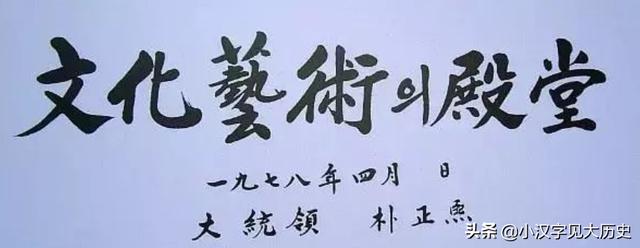 文化藝術의殿堂
一九七八年四月 日
大統領 朴正熙
头条 @小汉字见大历史